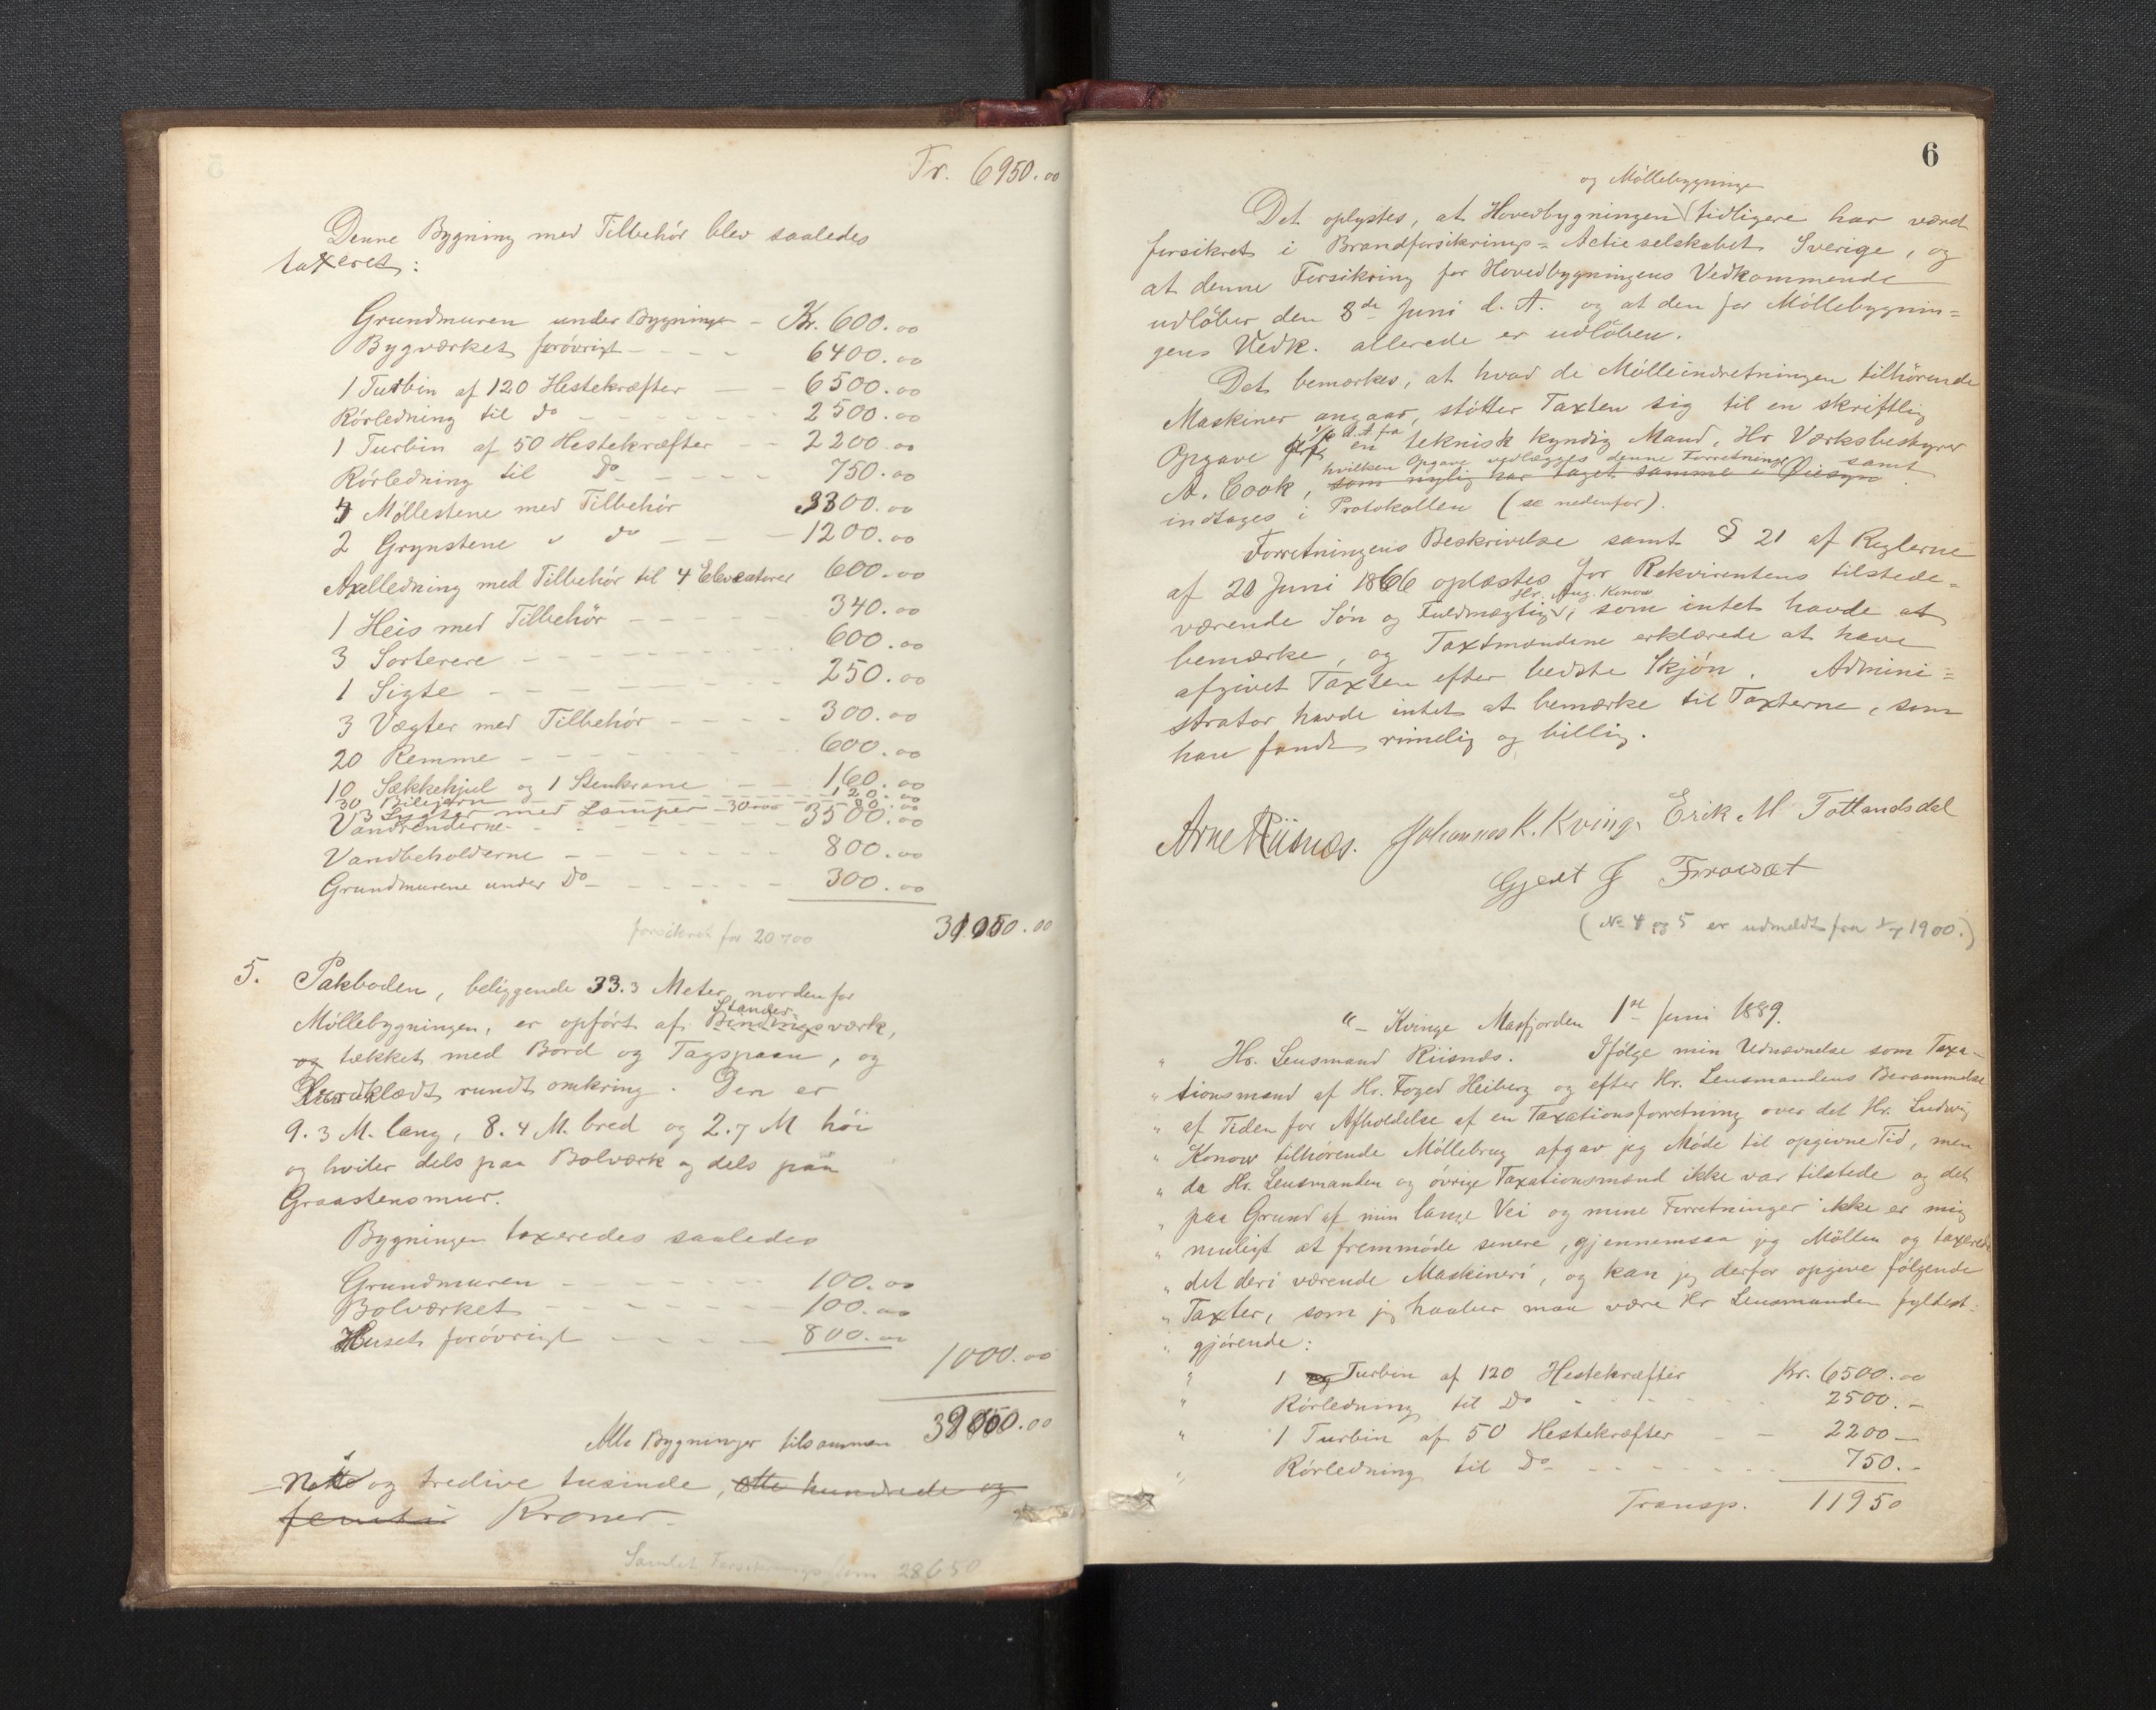 Fr. 6950.00
Denne Bygning med Tilbehör blev saaledes
taxeret:
Grundmuren under Bygningen - Kr. 600.00
Bygværket forövrigt - - - - 6400.00
1 Turbin af 120 Hestekræfter - - 6500.00
Rörledning til Do - - - - - - 2500.00
1 Turbin af 50 Hestekræfter - - 2200.00
Rörledning til Do - - - - - 750.00
4 Möllestene med Tilbehör 3300.00
2 Grynstene " do - - - 1200.00
Axelledning med Tilbehör til 4 Elevatorer 600.00
1 Heis med Tilbehör - - - - - 340.00
3 Sorterere - - - - - - - - 600.00
1 Sigte - - - - - - - - 250.00
3 Vægter med Tilbehör - - - - 300.00
20 Remme - - - - - - - - 600.00
10 Sækkehjul og 1 Stenkrane - - - 160.00
30 Bilejern - - - - - - - - 120.00
3 Lygter med Lamper - - - 80.00
Vandrenderne - - - - - - - 3500.00
Vandbeholderne - - - - - - 800.00
Grundmurene under Do - - - - - 300.00
forsikret for 20700
31050.00
5. Pakboden, beliggende 33.3 Meter norden for
Stander
Möllebygningen, er opfört af Bindingsværk,
og tækket med Bord og Tagspaan, og
bordklædt rundt omkring. Den er
9.3 M. lang, 8.4 M. bred og 2.7 M höi
og hviler dels paa Bolværk og dels paa
Graastensmur.
Bygningen taxeredes saaledes
Grundmuren - - - - - - - 100.00
Bolværket - - - - - - - - 100.00
Huset forövrigt - - - - - 800.00
1000.00
Alle Bygninger tilsammen 39000.00
Ni og tredive tusinde, otte hundrede og
femti Kroner.
Samlet Forsikringssum 28650
6
og Möllebygningen
Det oplystes, at Hovedbygningen tidligere har været
forsikret i Brandforsikrings=Actieselskabet Sverige, og
at denne Forsikring for Hovedbygningens Vedkommende
udlöber den 8de Juni d. A. og at den for Möllebygnin=
gens Vedk. allerede er udlöben.
Det bemærkes, at hvad de Mölleindretningen tilhörende
Maskiner angaar, stötter Taxten sig til en skriftlig
1/6 d. A. fra
Opgave af en teknisk kyndig Mand, Hr Værksbestyrer
hvilken Opgave vedlægges denne Forretning samt
A. Cook, som nylig har taget samme i Öiesyn.
indtages i Protokollen (se nedenfor).
Forretningens Beskrivelse samt § 21 af Reglerne
af 20 Juni 1866 oplæstes for Rekvirentens tilstede=
Hr. Aug. Konow
værende Sön og Fuldmægtig, som intet havde at
bemærke, og Taxtmændene erklærede at have
afgivet Taxten efter bedste Skjön. Admini=
strator havde intet at bemærke til Taxterne, som
han fandt rimelig og billig.
Arne Riisnæs. Johannes K. Kvinge Erik M Totlandsdal
Gjert J
(No 4 og 5 er udmeldt fra 1/7 1900.)
"- Kvinge Masfjorden 1ste Juni 1889.
" Hr. Lensmand Riisnæs. Ifölge min Udnævnelse som Taxa-
" tionsmand af Hr. Foged Heiberg og efter Hr. Lensmandens Berammelse
" af Tiden for Afholdelse af en Taxationsforretning over det Hr. Ludwig
" Konow tilhörende Möllebrug afgav jeg Möde til opgivne Tid, men
" da Hr. Lensmanden og övrige Taxationsmænd ikke var tilstede og det
" paa Grund af min lange Vei og mine Forretninger ikke er mig
" muligt at fremmöde senere, gjennemsaa jeg Möllen og taxerede
" det deri værende Maskineri, og kan jeg derfor opgive fölgende
" Taxter, som jeg haaber maa være Hr Lensmanden fyldest=
" gjörende:
" 1 Turbin af 120 Hestekræfter Kr. 6500.00
" Rörledning til Do - - - - - 2500.-
" 1 Turbin af 50 Hestekræfter - - 2200-
" Rörledning til Do - - - - - - 750.-
Transp. 11950